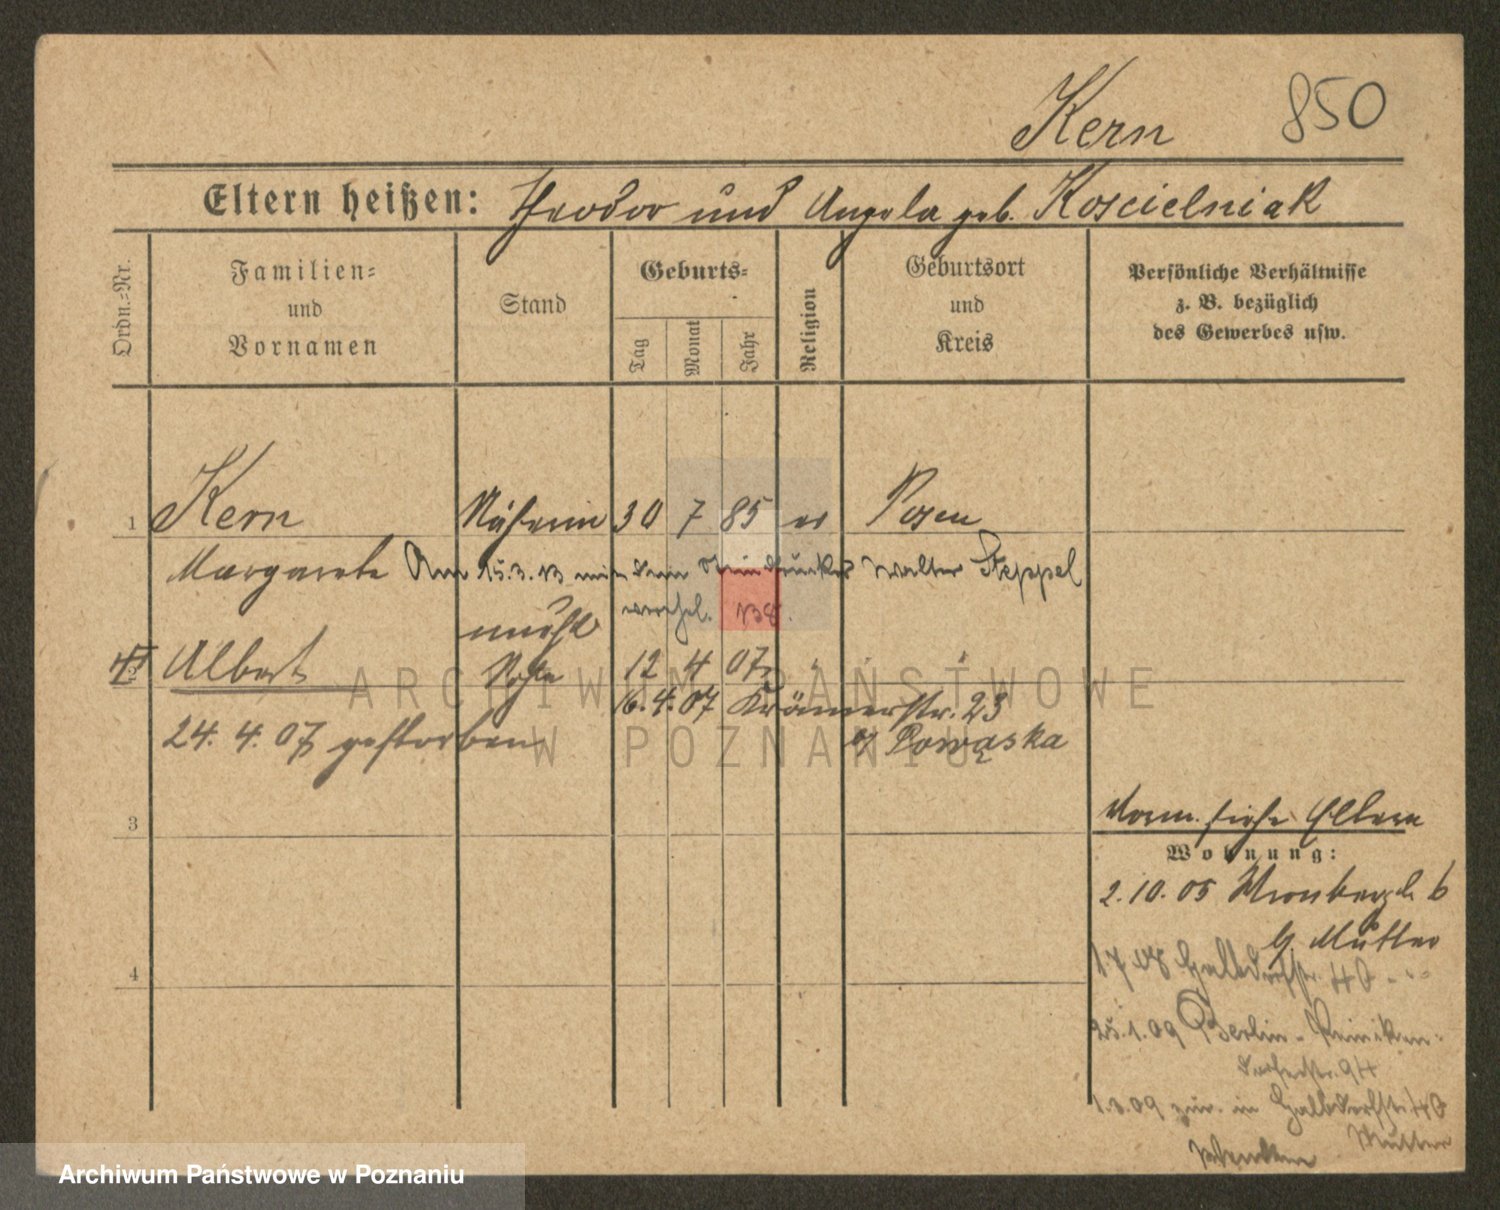 Kern 850
Eltern heißen: Theodor und Angela geb. Koscielniak
Ordn.-Nr.
Familien- und Vornamen
Stand
Geburts-
Tag Monat Jahr
Religion
Geburtsort und Kreis
Persönliche Verhältnisse z. B. bezüglich des Gewerbes usw.
1 Kern Näherin 30 7 85 ev Posen
Margarete Am 15.3.13 mit dem Steindrucker Walter Steppel
verehel. 138.
unehl
2 Albert Sohn 12 4 07
16.4.07 Krämerstr. 23
24. 4. 07 gestorben b/ Powąska
3
Vorm. siehe Eltern
Wohnung:
2.10.05 Wronkerpl. 6
b/ Mutter
4
1.7.08 Halbdorfstr. 40 - " -
25.1.09 Berlin - Reiniken-
dorferstr. 94
1.3.09 zur. in Halbdorfstr. 40
Mutter
ARCHIWUM PAŃSTWOWE
W POZNANIU
Archiwum Państwowe w Poznaniu